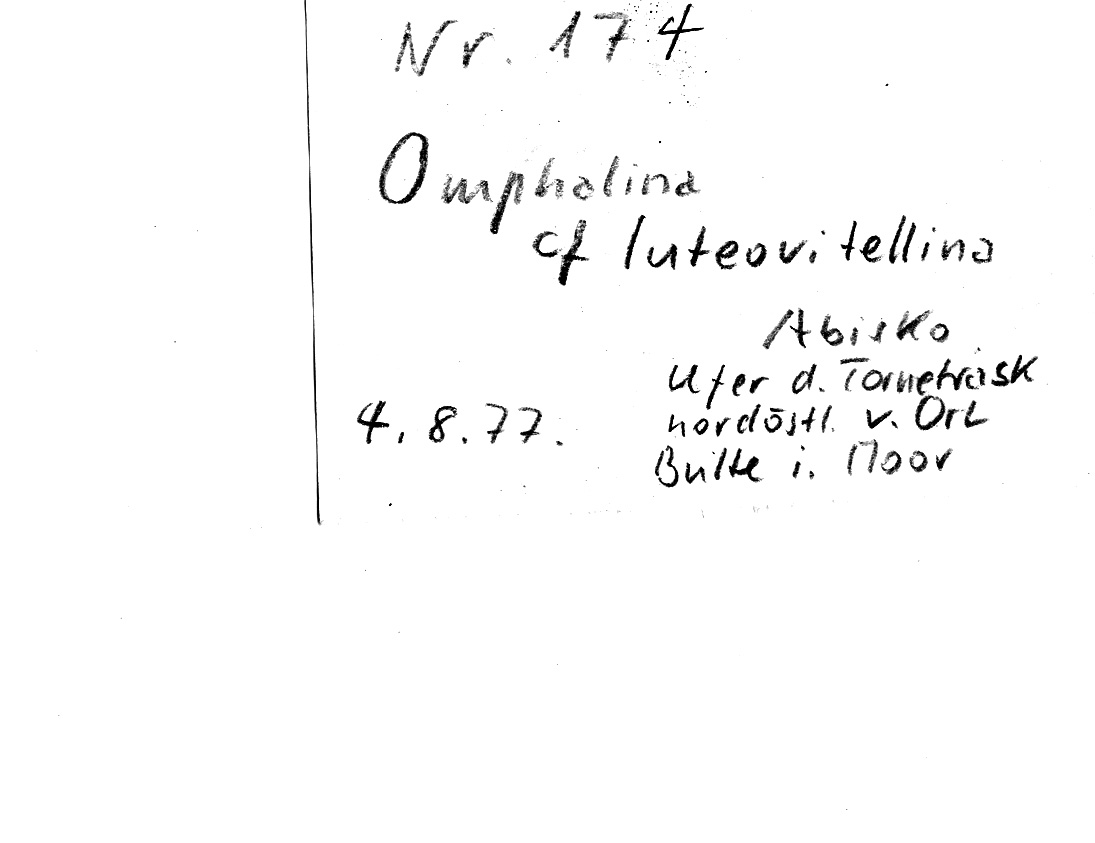 Nr. 174
Omphalina
cf luteovitellina
Abisko
Ufer d. Torneträsk
4.8.77. nordöstl. v. Ort
Bulte i. Moor